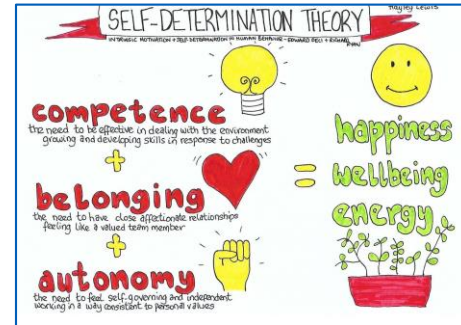 Hayley Lewis
SELF-DETERMINATION THEORY
INTRINSIC MOTIVATION + SELF DETERMINATION IN HUMAN BEHAVIOR - EDWARD DECI & RICHARD
RYAN
competence
the need to be effective in dealing with the environment
growing and developing skills in response to challenges
+
belonging
the need to have close affectionate relationships
feeling like a valued team member
+
autonomy
the need to feel self-governing and independent
working in a way consistent to personal values
=
happiness
wellbeing
energy